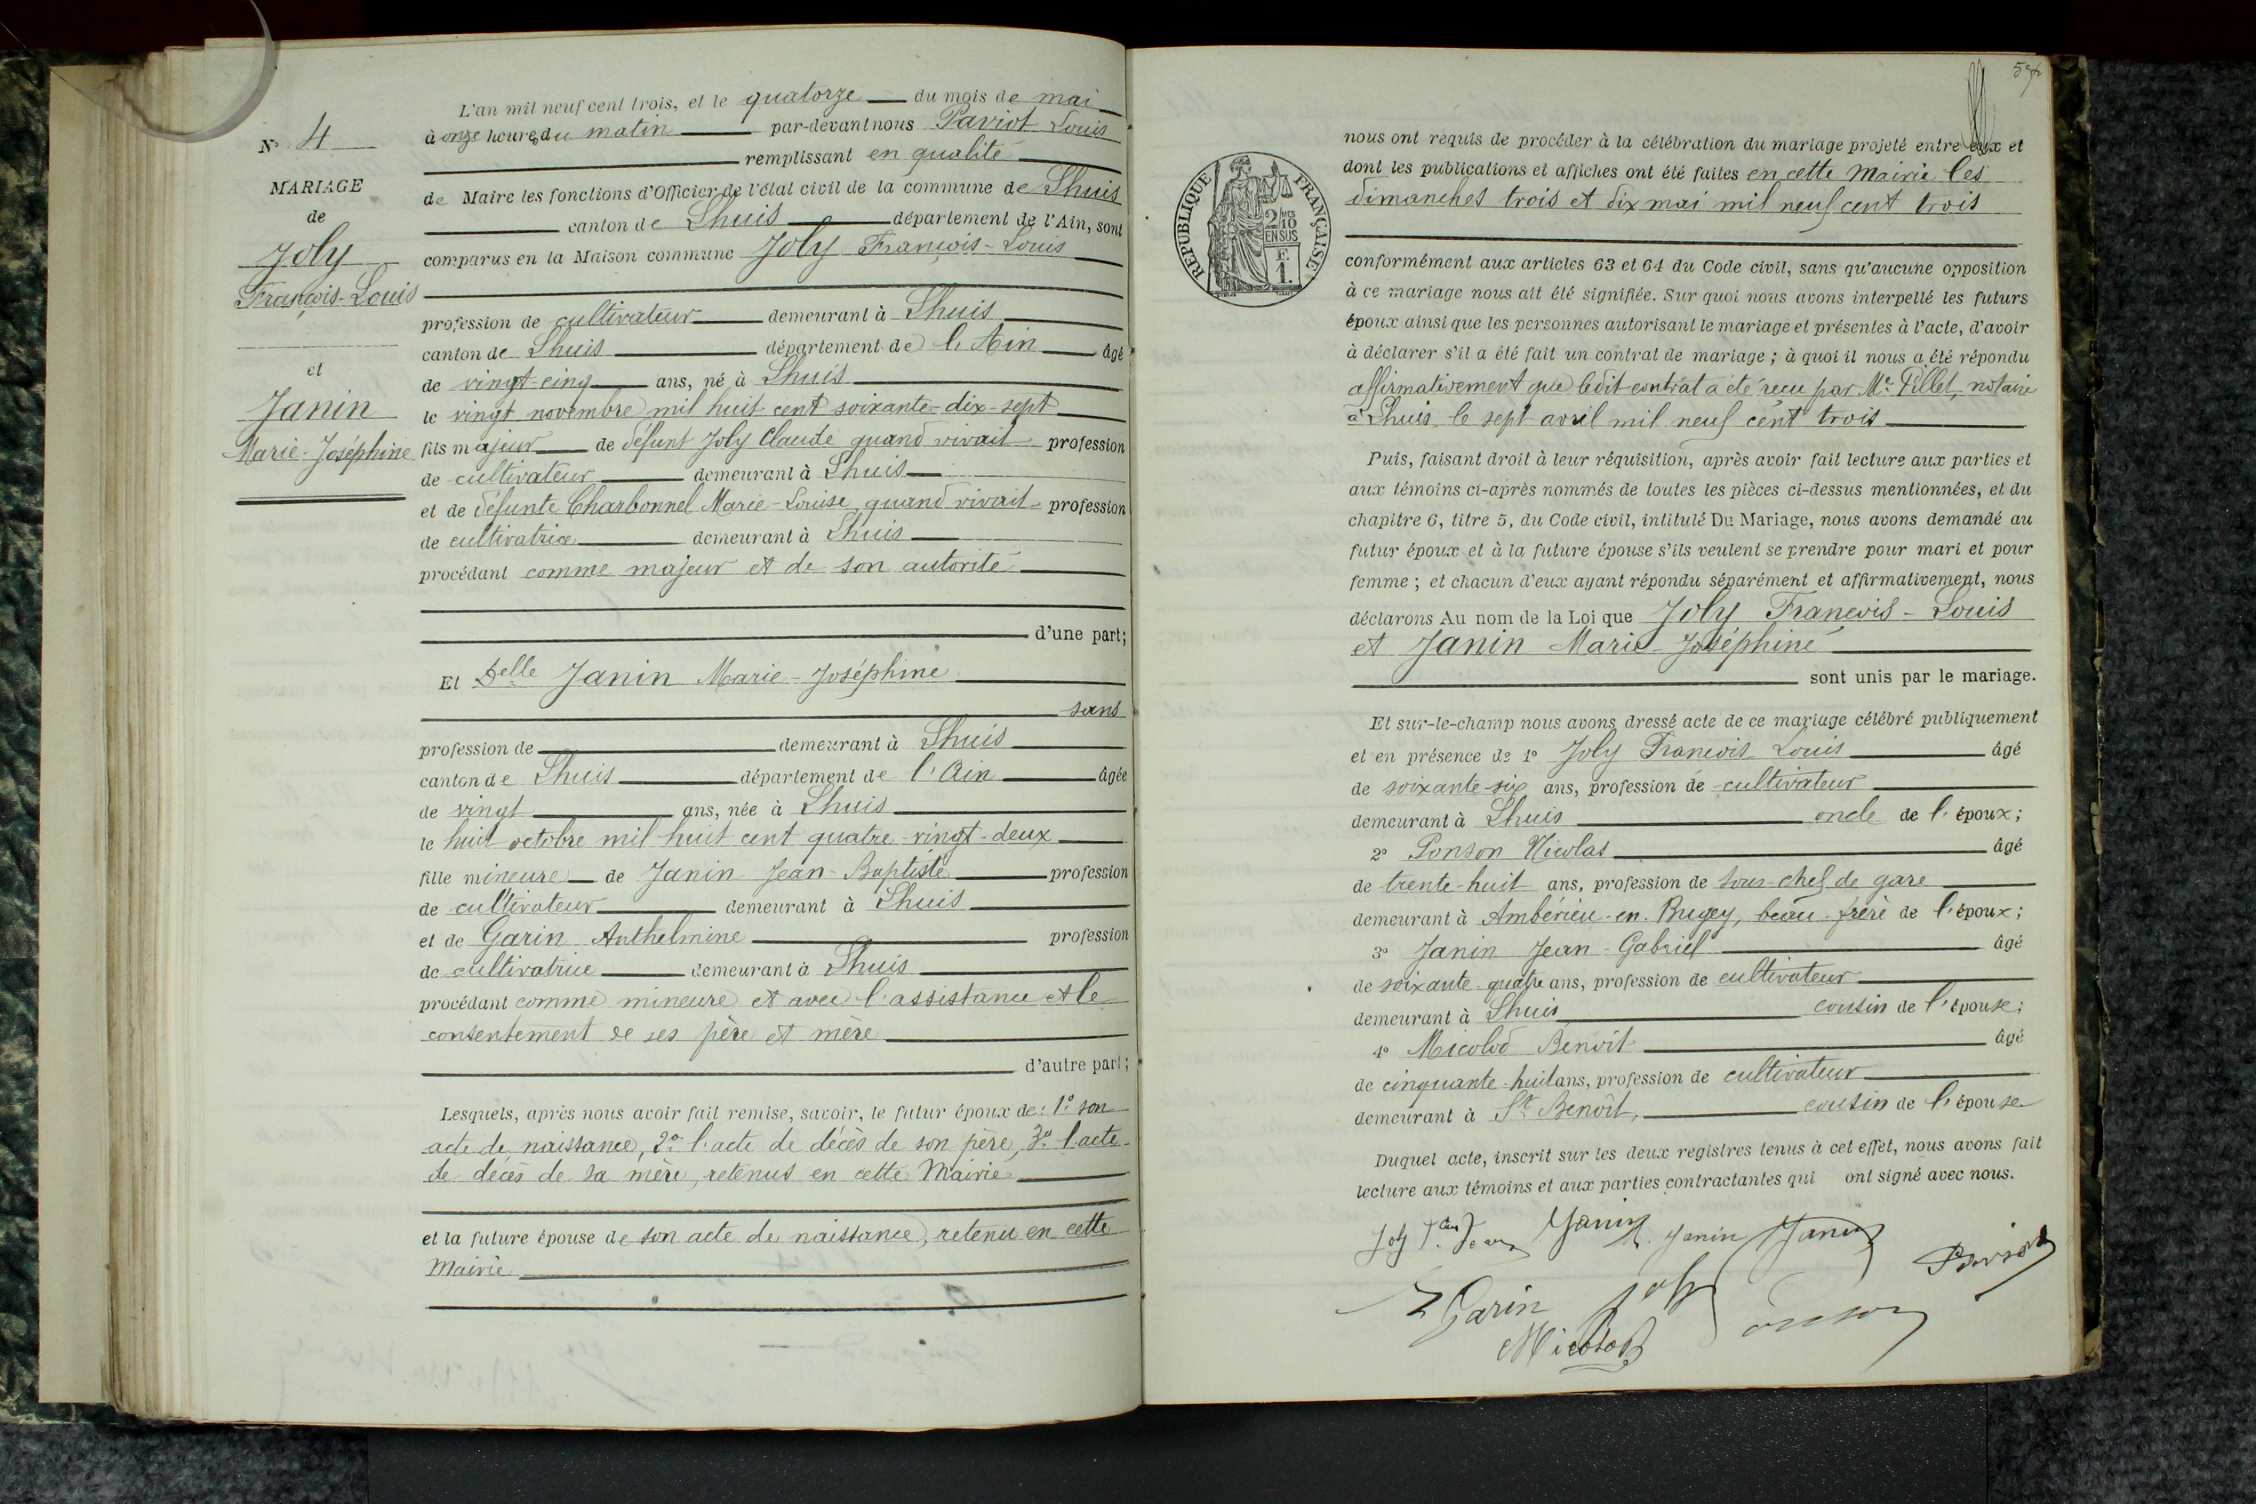 N° 4
MARIAGE
de
Joly
François-Louis
et
Janin
Marie-Joséphine
L'an mil neuf cent trois, et le quatorze du mois de mai
à onze heures du matin par-devant nous Paviot Louis
remplissant en qualité
de Maire les fonctions d'Officier de l'état civil de la commune de Lhuis
canton de Lhuis département de l'Ain, sont
comparus en la Maison commune Joly François-Louis
profession de cultivateur demeurant à Lhuis
canton de Lhuis département de l'Ain âgé
de vingt-cinq ans, né à Lhuis
le vingt novembre mil huit cent soixante-dix-sept
fils majeur de défunt Joly Claude quand vivait profession
de cultivateur demeurant à Lhuis
et de défunte Charbonnel Marie-Louise, quand vivait profession
de cultivatrice demeurant à Lhuis
procédant comme majeur et de son autorité
d'une part;
Et Delle Janin Marie-Joséphine
sans
profession de demeurant à Lhuis
canton de Lhuis département de l'Ain âgée
de vingt ans, née à Lhuis
le huit octobre mil huit cent quatre-vingt-deux
fille mineure de Janin Jean-Baptiste profession
de cultivateur demeurant à Lhuis
et de Garin Anthelmine profession
de cultivatrice demeurant à Lhuis
procédant comme mineure et avec l'assistance et le
consentement de ses père et mère
d'autre part;
Lesquels, après nous avoir fait remise, savoir, le futur époux de: 1° son
acte de naissance, 2° l'acte de décès de son père, 3° l'acte
de décès de sa mère, retenus en cette Mairie
et la future épouse de son acte de naissance, retenu en cette
Mairie
RÉPUBLIQUE FRANÇAISE
2/10
EN SUS
F.
1.
nous ont requis de procéder à la célébration du mariage projeté entre eux et
dont les publications et affiches ont été faites en cette Mairie les
dimanches trois et dix mai mil neuf cent trois
conformément aux articles 63 et 64 du Code civil, sans qu'aucune opposition
à ce mariage nous ait été signifiée. Sur quoi nous avons interpellé les futurs
époux ainsi que les personnes autorisant le mariage et présentes à l'acte, d'avoir
à déclarer s'il a été fait un contrat de mariage; à quoi il nous a été répondu
affirmativement que ledit contrat a été reçu par Me Pillet, notaire
à Lhuis le sept avril mil neuf cent trois
Puis, faisant droit à leur réquisition, après avoir fait lecture aux parties et
aux témoins ci-après nommés de toutes les pièces ci-dessus mentionnées, et du
chapitre 6, titre 5, du Code civil, intitulé Du Mariage, nous avons demandé au
futur époux et à la future épouse s'ils veulent se prendre pour mari et pour
femme; et chacun d'eux ayant répondu séparément et affirmativement, nous
déclarons Au nom de la Loi que Joly François-Louis
et Janin Marie-Joséphine
sont unis par le mariage.
Et sur-le-champ nous avons dressé acte de ce mariage célébré publiquement
et en présence de 1° Joly François Louis âgé
de soixante-six ans, profession de cultivateur
demeurant à Lhuis oncle de l'époux;
2° Ponson Nicolas âgé
de trente-huit ans, profession de sous-chef de gare
demeurant à Ambérieu-en-Bugey, beau-frère de l'époux;
3° Janin Jean-Gabriel âgé
de soixante-quatre ans, profession de cultivateur
demeurant à Lhuis cousin de l'épouse;
4° Micolod Benoît âgé
de cinquante-huit ans, profession de cultivateur
demeurant à St Benoît, cousin de l'épouse
Duquel acte, inscrit sur les deux registres tenus à cet effet, nous avons fait
lecture aux témoins et aux parties contractantes qui ont signé avec nous.
Joly Janin Janin Janin
Paviot
Garin Joly
Micolod